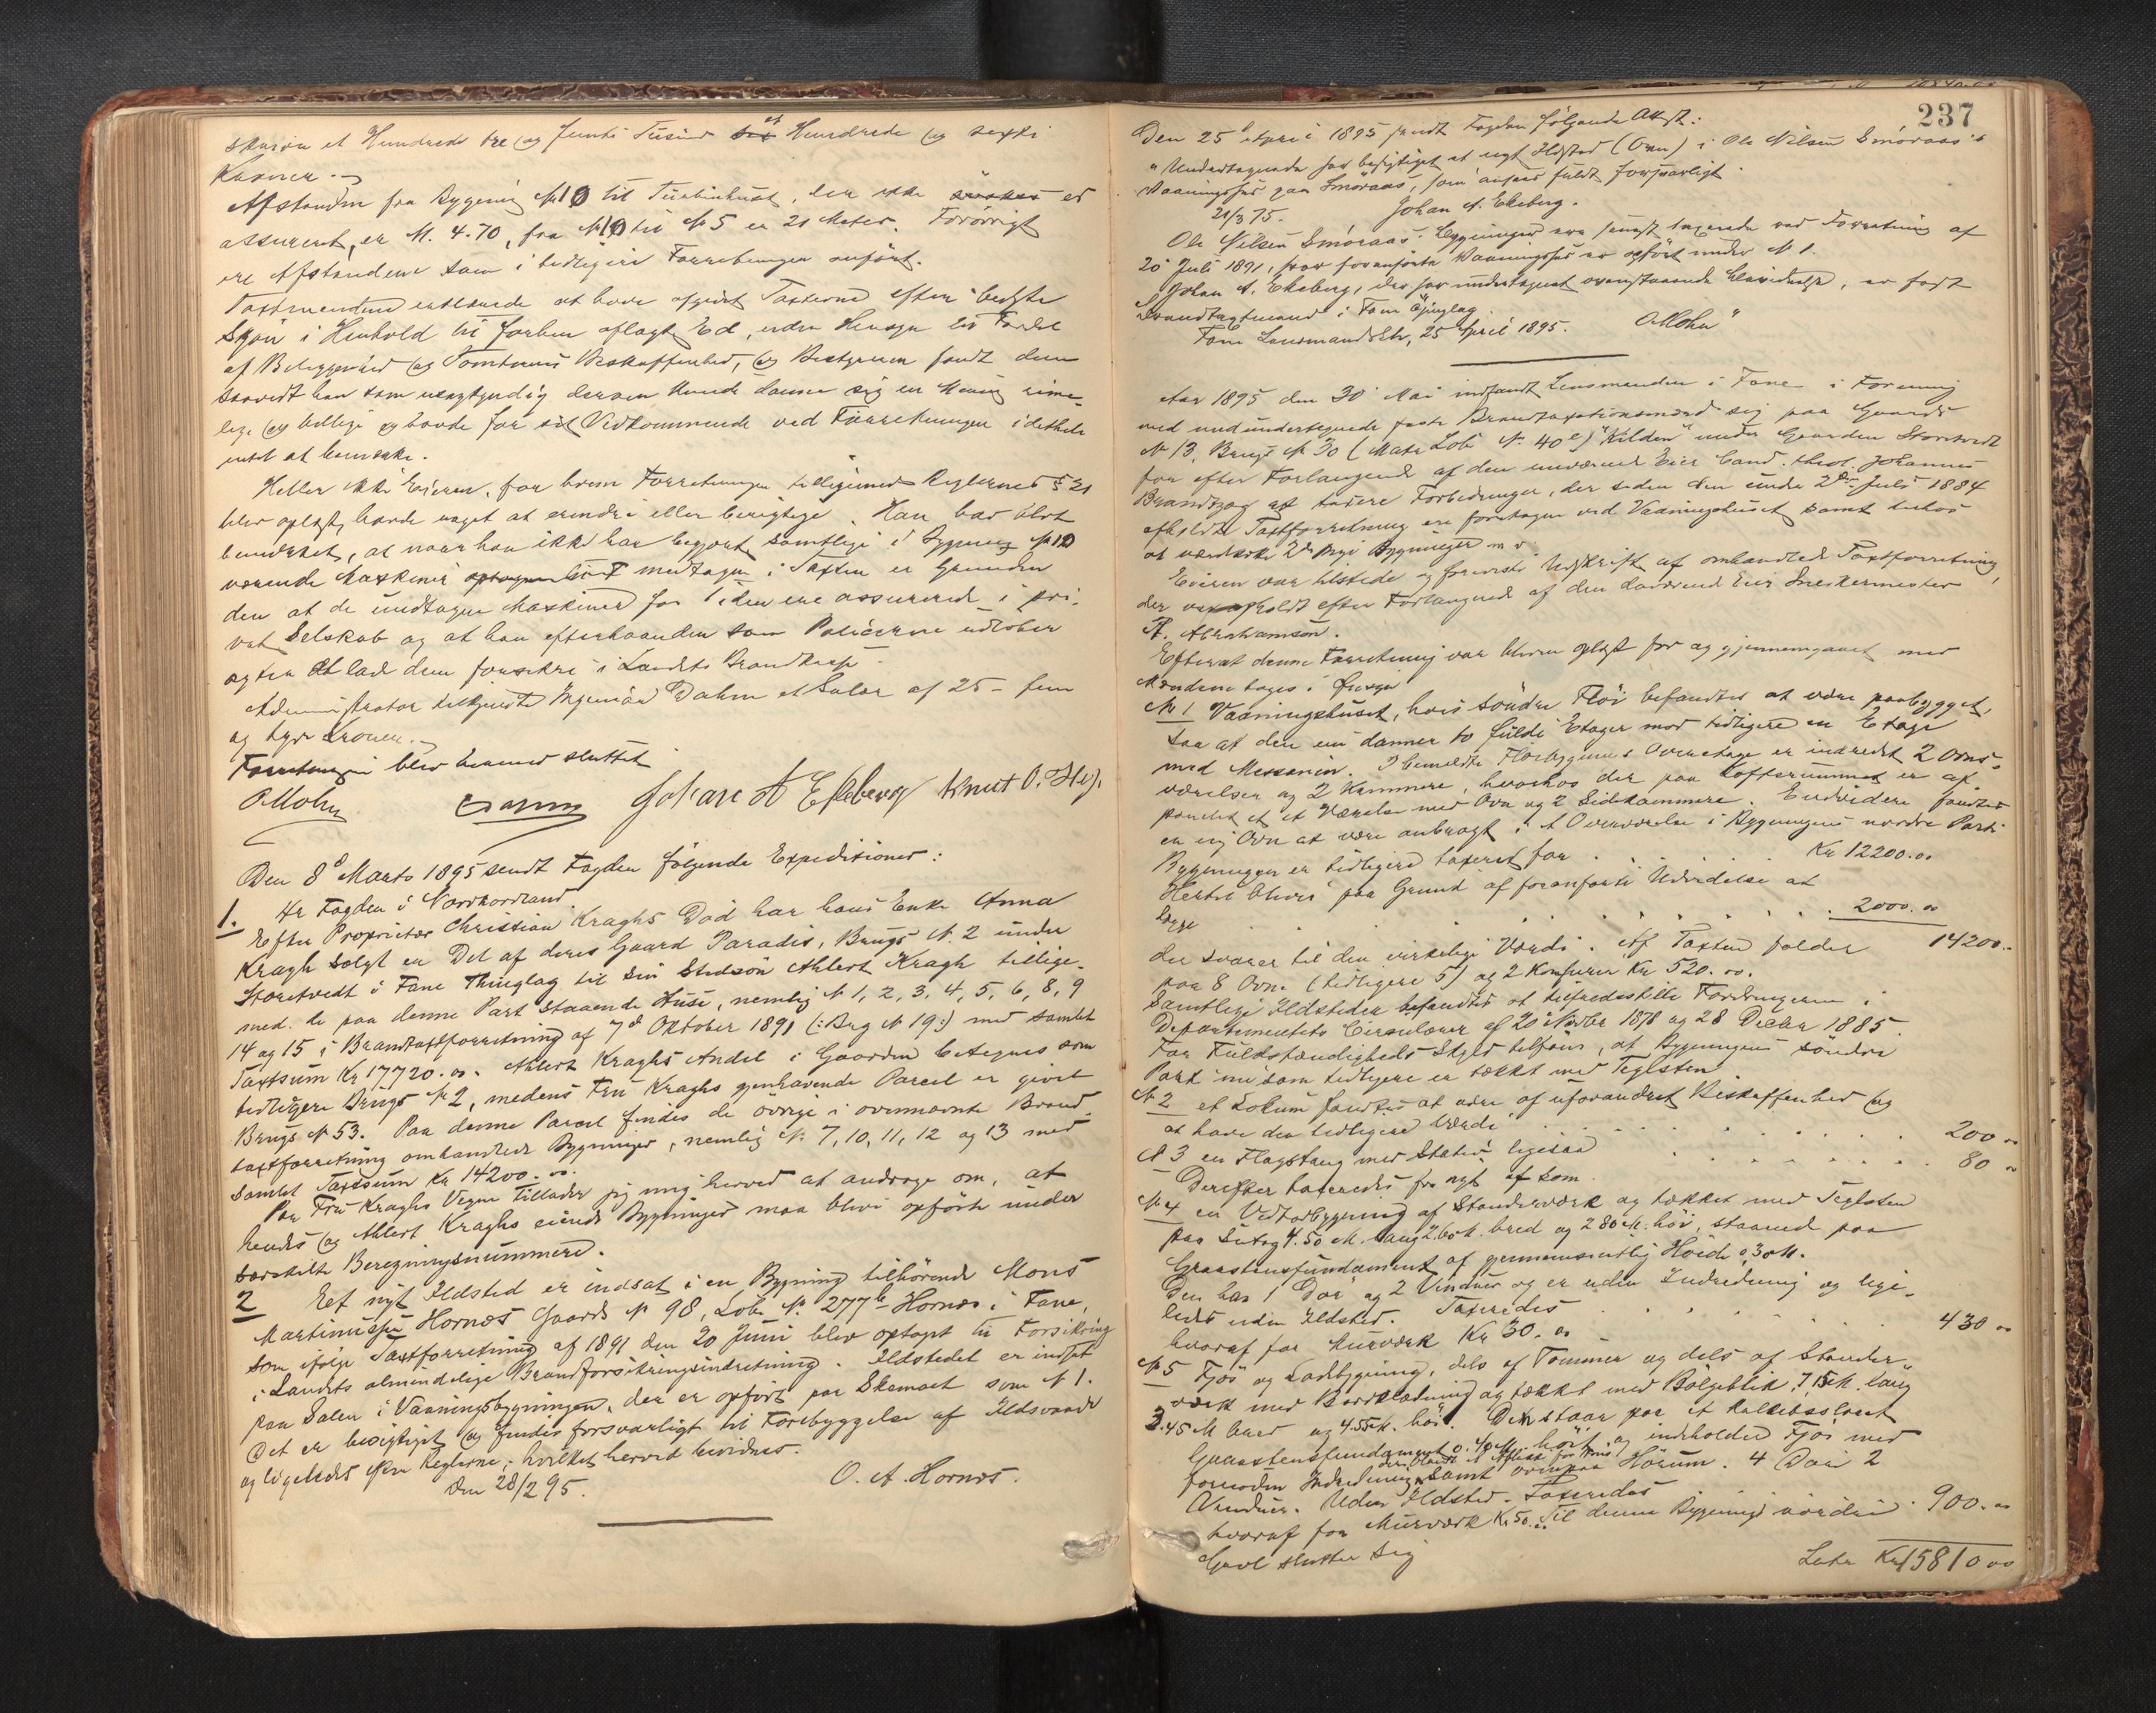 skriver et Hundrede tre og femti Tusind et Hundrede og sexti
Kroner.
Afstanden fra Bygning № 10 til Turbinhuset, der ikke er
assureret, er M. 4.70, fra № 10 til № 5 er 21 Meter. Forøvrigt
ere Afstandene som i tidligere Forretninger anført.
Taxtmændene erklærede at have afgivet Taxterne efter bedste
Skjøn i Henhold til forhen aflagt Ed, uden Hensyn til Fordel
af Beliggenhed og Tomternes Beskaffenhed, og Bestyreren fandt dem
saavidt han som usagkyndig derom kunde danne sig en Mening rime-
lige og billige og havde for sit Vedkommende ved Forretningen idethele
intet at bemærke.
Heller ikke Eieren, for hvem Forretningen tilligemed Reglernes § 21
blev oplæst, havde noget at erindre eller berigtige. Han bad blot
bemærket, at naar han ikke har begjært samtlige i Bygning № 10
værende Maskiner medtagne i Taxten er Grunden
den at de undtagne Maskiner for Tiden ere assurerede i pri-
vat Selskab og at han efterhaanden som Policerne udløber
agter at lade dem forsikre i Landets Brandkasse.
Administrator tilkjendte Ingeniør Dahm et Salær af 25 – fem
og tyve Kroner.
Forretningen blev hermed sluttet
OMohn Dahm Johan A Ekeberg Knut O.
Den 8de Marts 1895 sendt Fogden følgende Expeditioner:
1. Hr Fogden i Nordhordland.
Efter Proprietær Christian Kraghs Død har hans Enke Anna
Kragh solgt en Del af deres Gaard Paradis, Brugs № 2 under
Storetvedt i Fane Thinglag til sin Stedsøn Ahlert Kragh tillige-
med de paa denne Part staaende Huse, nemlig № 1, 2, 3, 4, 5, 6, 8, 9
14 og 15 i Brandtaxtforretning af 7de Oktober 1891 (: Brug № 19:) med samlet
Taxtsum Kr 17720.00. Ahlert Kraghs Andel i Gaarden betegnes som
tidligere Brugs № 2, medens Fru Kraghs gjenhavende Parcel er givet
Brugs № 53. Paa denne Parcel findes de øvrige i ovennævnte Brand-
taxtforretning omhandlede Bygninger, nemlig № 7, 10, 11, 12 og 13 med
samlet Taxtsum Kr 14200.00.
Paa Fru Kraghs Vegne tillader jeg mig herved at andrage om, at
hendes og Ahlert Kraghs eiende Bygninger maa blive opførte under
særskilte Beregningsnummere.
2 Eet nyt Ildsted er indsat i en Bygning tilhørende Mons
Martinussen Hornæs Gaards № 98, Løbe № 277b Hornæs i Fane,
som ifølge Taxtforretning af 1891 den 20 Juni blev optaget til Forsikring
i Landets almindelige Brandforsikringsindretning. Ildstedet er indsat
paa Salen i Vaaningsbygningen, der er opført paa Skemaet som № 1.
Det er besigtiget og findes forsvarligt til Forebyggelse af Ildsvaade
og ligeledes efter Reglerne; hvilket herved bevidnes.
den 28/2 95. O. A. Hornæs.
237
Den 25de April 1895 sendt Fogden følgende Attest:
"Undertegnede har besigtiget et nyt Ildsted (Ovn) i Ole Nilsen Smøraas's
Vaaningshus paa Smøraas, som ansees fuldt forsvarligt.
21/3 95. Johan A. Ekeberg.
Ole Nilsen Smøraas' Bygninger ere senest taxerede ved Forretning af
20 Juli 1891, hvor foranførte Vaaningshus er opført under № 1.
Johan A. Ekeberg, der har undertegnet ovenstaaende Bevidnelse, er fast
Brandtaxtmand i Fane Thinglag.
Fane Lensmandsktr, 25 April 1895. OMohn"
Aar 1895 den 30 Mai indfandt Lensmanden i Fane i Forening
med undertegnede faste Brandtaxationsmænd sig paa Gaards
№ 13, Brugs № 30 (Matr. Løbe № 40e) "Kilden" under Gaarden Storetvedt
for efter Forlangende af den nuværende Eier Cand. theol. Johannes
Brandtzæg at taxere Forbedringer, der siden den under 2den Juli 1884
afholdte Taxtforretning ere foretagne ved Vaaningshuset samt tillige
at værdsætte 2de nye Bygninger m. v.
Eieren var tilstede og foreviste Udskrift af omhandlede Taxtforretning,
der var afholdt efter Forlangende af den daværende Eier Snekkermester
A. Abrahamson.
Efterat denne Forretning var bleven oplæst for og gjennemgaaet med
Mændene toges i Øiesyn
№ 1 Vaaningshuset, hvis søndre Fløi befandtes at være paabygget,
saa at den nu danner to fulde Etager mod tidligere en Etage
med Messanin. I bemeldte Fløibygnings Overetage er indredet 2 Ovns-
værelser og 2 Kammere, hvorhos der paa Lofterummet er af-
panelet et Værelse med Ovn og 2 Sidekammere. Endvidere fandtes
en ny Ovn at være anbragt i et Overværelse i Bygningens nordre Parti
Bygningen er tidligere taxeret for . . Kr 12200.00
Hertil bliver paa Grund af foranførte Udvidelse at
lægge . . . . . . . . . 2000.00 14200..
der svarer til den virkelige Værdi. Af Taxten falder
paa 8 Ovne (tidligere 5) og 2 Komfurer Kr 520.00.
Samtlige Ildsteder befandtes at tilfredsstille Fordringerne i
Departementets Circulærer af 20 Novbr 1878 og 28 Decbr 1885.
For Fuldstændigheds Skyld tilføies, at Bygningens søndre
Part nu som tidligere er tækket med Teglsten
№ 2 et Lokum fandtes at være af uforandret Beskaffenhed og
at have den tidligere Værdi . . . . . . . . 200 00
№ 3 en Flagstang med Stativ ligesaa . . . . . . 80 00
Derefter taxeredes fra nyt af som
№ 4 en Vedbodbygning af Standerværk og tækket med Teglsten
paa Sutag 4.50 M. lang 2.60 M. bred og 2 80 M. høi, staaende paa
Graastensfundament af gjennemsnitlig Høide 0,30 M.
Den har 1 Dør og 2 Vinduer og er uden Indredning og lige-
ledes uden Ildsted. Taxeredes . . . . . . 430 00
hvoraf for Murværk Kr 30.00
№ 5 Fjøs og Ladebygning, dels af Tømmer og dels af Stander-
værk med Bordklædning og tækket med Bølgeblik. 7,15 M. lang
3.45 M bred og 4.55 M. høi. Den staar paa et kalkbeslaaet
Graastensfundament 0.40 M. høit og indeholder Fjøs med
fornøden Indredning samt ovenpaa Hørum. 4 Døre 2
Vinduer. Uden Ildsted. Taxeredes . 900.00
hvoraf for Murværk Kr 50.. Til denne Bygnings nordre
Gavl slutter sig
Latr Kr 15810 00